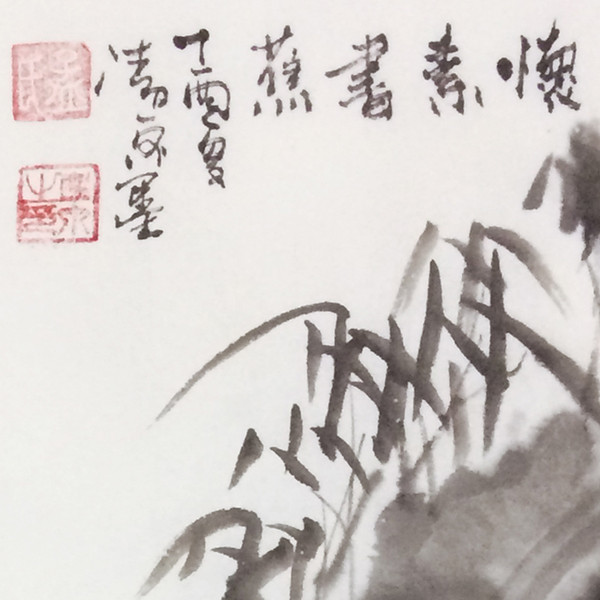 懷素書蕉
丁酉夏
清泉墨